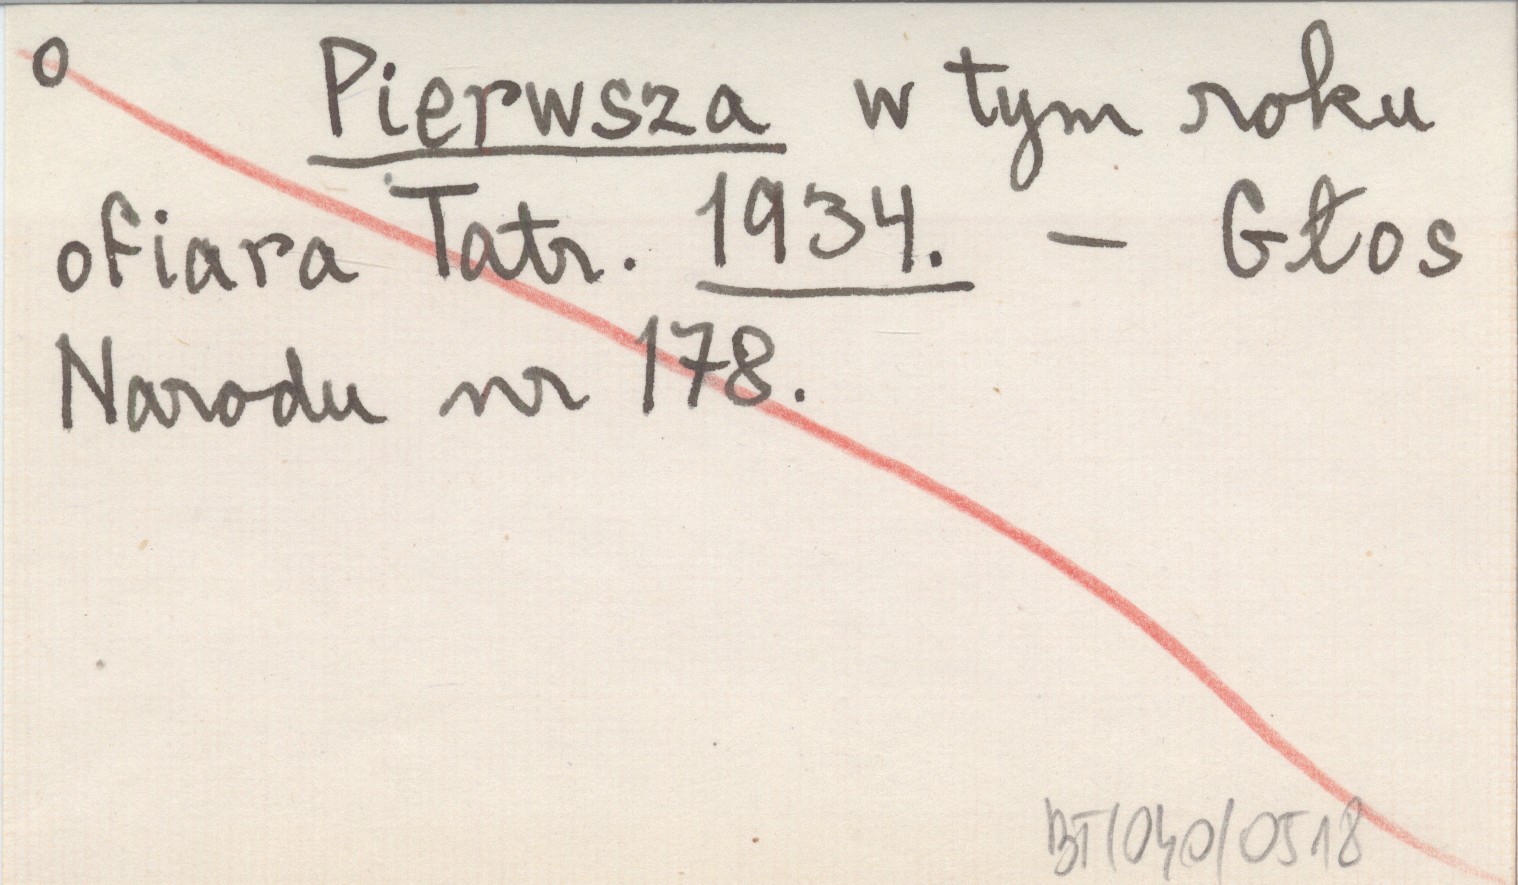 o Pierwsza w tym roku
ofiara Tatr. 1934. – Głos
Narodu nr 178.
BT/040/0518